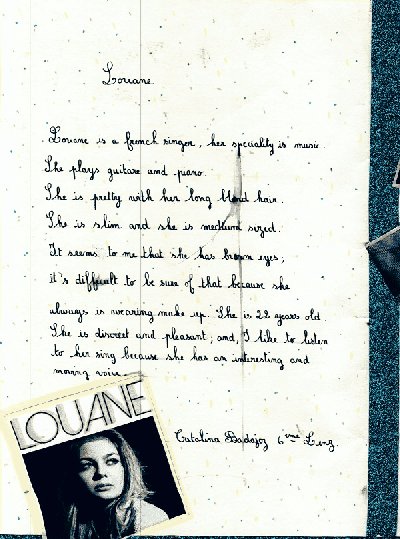 Louane.
Louane is a french singer, her speciality is music.
She plays guitare and piano.
She is pretty with her long blond hair.
She is slim and she is medium sized.
It seems to me that she has brown eyes;
it's difficult to be sure of that because she
always is wearing make up. She is 22 years old.
She is discreet and pleasant, and, I like to listen
to her sing because she has an interesting and
moving voice.
LOUANE
Catalina Badajoz 6ème Ling.